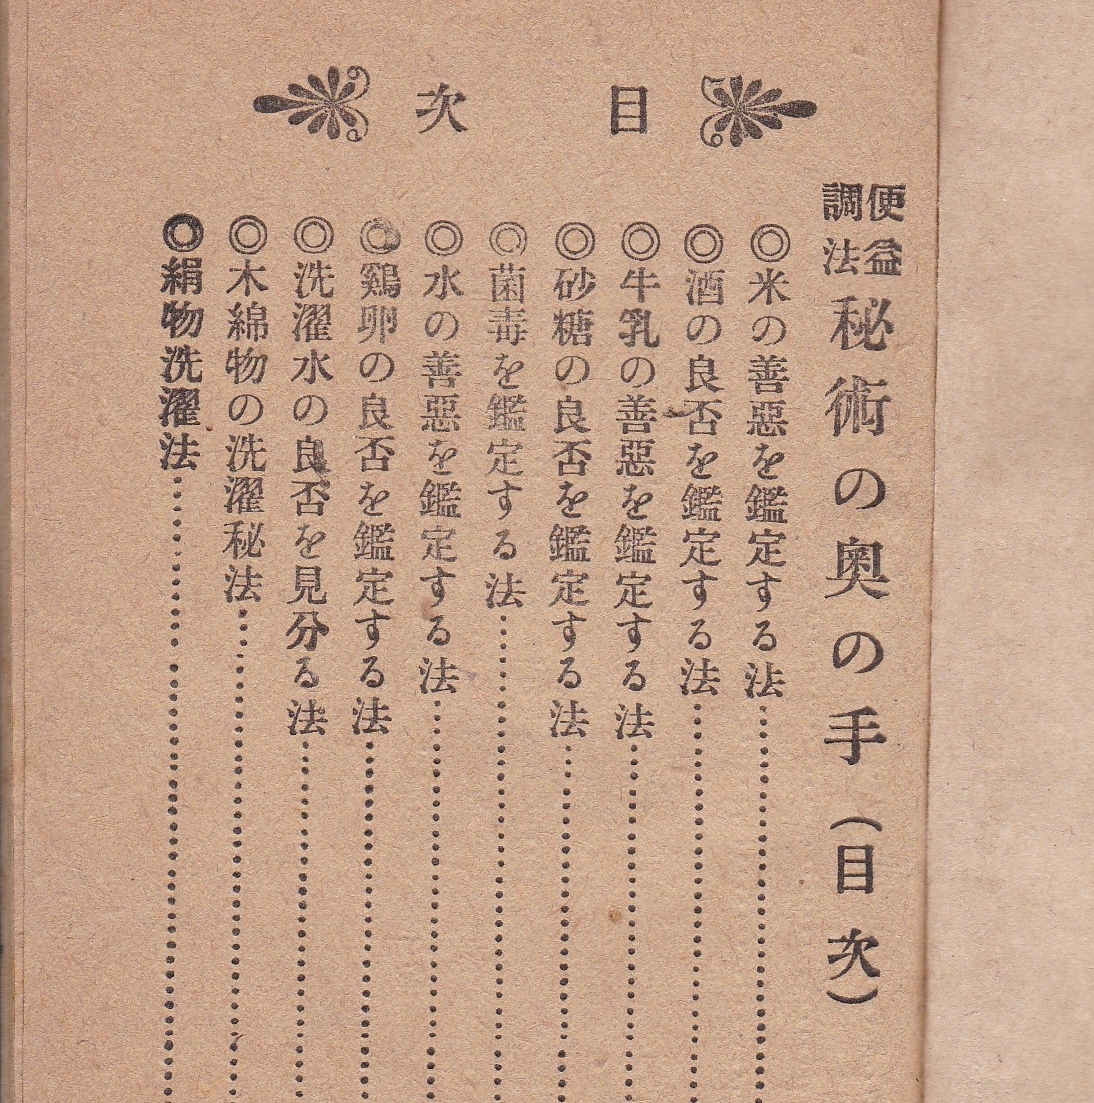 目次
便益調法 秘術の奥の手（目次）
◎米の善惡を鑑定する法
◎酒の良否を鑑定する法
◎牛乳の善惡を鑑定する法
◎砂糖の良否を鑑定する法
◎菌毒を鑑定する法
◎水の善惡を鑑定する法
◎鷄卵の良否を鑑定する法
◎洗濯水の良否を見分る法
◎木綿物の洗濯秘法
◎絹物洗濯法